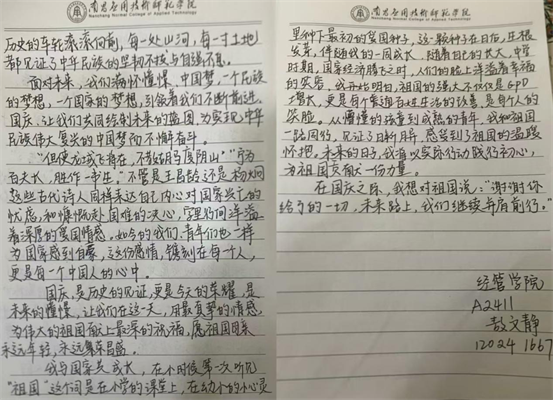 南昌应用技术师范学院
Nanchang Normal College of Applied Technology
历史的车轮滚滚向前,每一处山河,每一寸土地
都见证了中华民族的坚韧不拔与自强不息。
面对未来,我们满怀憧憬,中国梦,一个民族
的梦想,一个国家的梦想,引领着我们不断前进。
国庆,让我们共同绘制未来的蓝图,为实现中华
民族伟大复兴的中国梦而不懈奋斗。
“但使龙城飞将在,不教胡马度阴山”“宁为
百夫长,胜作一书生。”不管是王昌龄还是杨炯
这些古代诗人同样表达自己内心对国家兴亡的
忧虑,和慷慨赴国难的决心,字里行间洋溢
着深厚的爱国情感,如今的我们,青年们也一样
为国家感到自豪,这份感情,镌刻在每一个人,
更是每一个中国人的心中。
国庆,是历史的见证,更是今天的荣耀,是
未来的憧憬,让我们在这一天,用最真挚的情感,
为伟大的祖国献上最深的祝福,愿祖国母亲
永远年轻,永远繁荣昌盛。
我与国家共成长,在小时候第一次听见
“祖国”这个词是在小学的课堂上,在幼小的心灵
南昌应用技术师范学院
Nanchang Normal College of Applied Technology
里种下最初的爱国种子,这一颗种子在日后,生根
发芽,伴随我的一同成长,随着自己的长大,中学
时期,国家经济腾飞之时,人们的脸上洋溢着幸福
的笑容,我开始明白,祖国的强大不仅仅是GDP
增长,更是每个家庭百姓生活的改善,是每个人的
笑脸。从懵懂的孩童到成熟的青年,我和祖国
一路同行,见证了日新月异,感受到了祖国的温暖
怀抱。未来的日子,我将以实际行动践行初心,
为祖国贡献一份力量。
在国庆之际,我想对祖国说:“谢谢你
给予的一切,未来路上,我们继续并肩前行。”
经管学院
A2411
敖文静
12024 1667